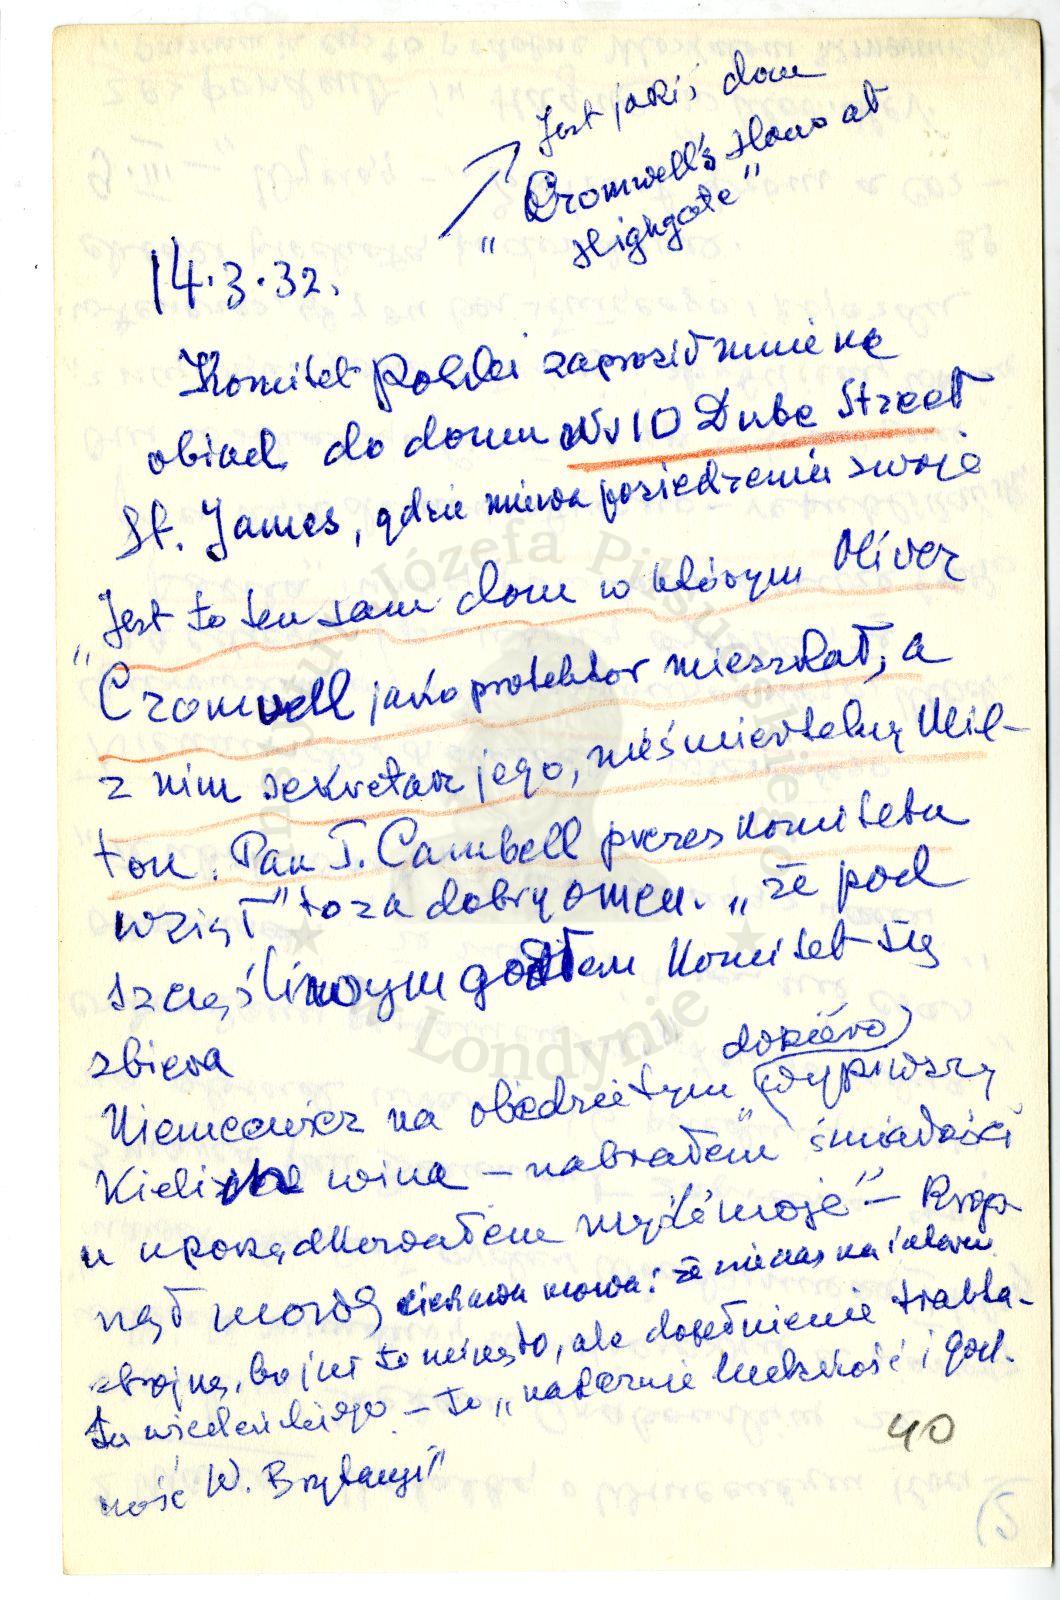 Jest jakiś dom
"Cromwell's House at
Highgate"
14.3.32.
Komitet Polski zaprosił mnie na
obiad do domu Nr 10 Duke Street
St. James, gdzie miewa posiedzenia swoje
"Jest to ten sam dom w którym Oliver
Cromwell jako protektor mieszkał, a
z nim sekretarz jego, nieśmiertelny Mil-
ton. Pan T. Cambell prezes Komitetu
wziął "to za dobry omen. "że pod
szczęśliwym godłem Komitet się
zbiera
Niemcewicz na obiedzie tym dopiero wypiwszy
Kielich wina – nabrałem śmiałości
i uporządkowałem myśli moje" – Rżnę-
nął mową ciekawa mowa: że nie czas na interw.
zbrojną, bo już to minęło, ale dopełnienie trakta-
tu wiedeńskiego – to "nakazuje ludzkość i god-
ność W. Brytanji"
40
Instytut Józefa Piłsudskiego
w Londynie